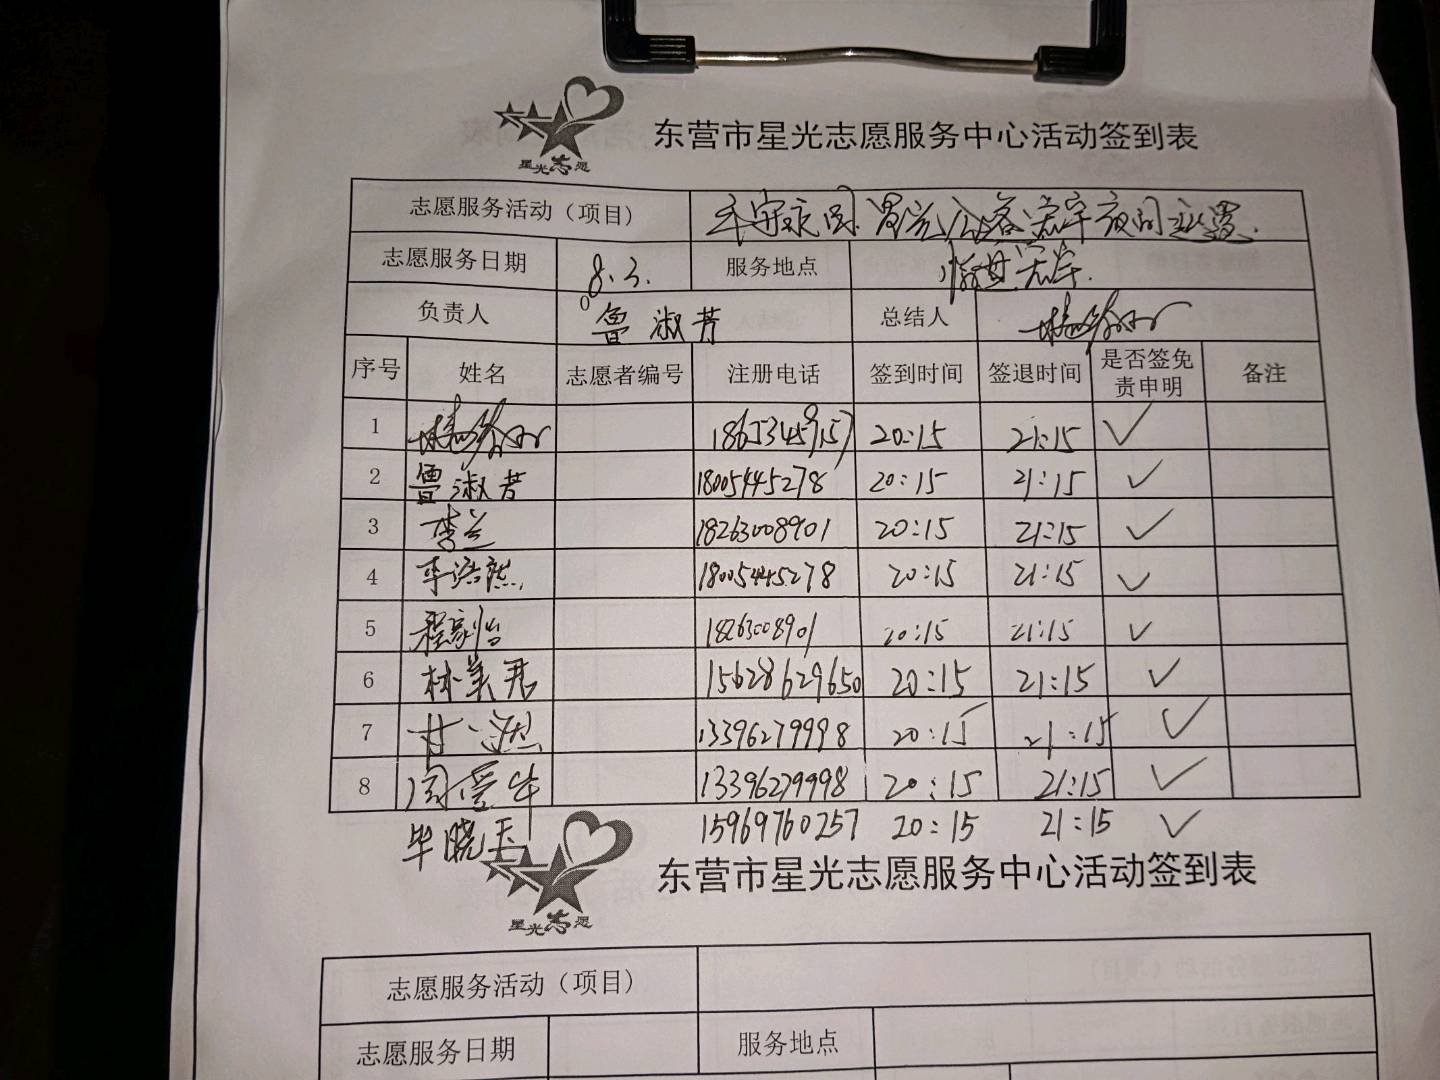 星光志愿
东营市星光志愿服务中心活动签到表
志愿服务活动（项目）
志愿服务日期 8.3. 服务地点
负责人 鲁淑芳 总结人
序号 姓名 志愿者编号 注册电话 签到时间 签退时间 是否签免责申明 备注
1 20:15 21:15 ✓
2 鲁淑芳 18005445278 20:15 21:15 ✓
3 李兰 18263008901 20:15 21:15 ✓
4 李浩然 18005445278 20:15 21:15 ✓
5 程家怡 18263008901 20:15 21:15 ✓
6 林美君 15628629650 20:15 21:15 ✓
7 13396279998 20:15 21:15 ✓
8 周爱华 13396279998 20:15 21:15 ✓
毕晓玉 15969760257 20:15 21:15 ✓
星光志愿
东营市星光志愿服务中心活动签到表
志愿服务活动（项目）
志愿服务日期 服务地点